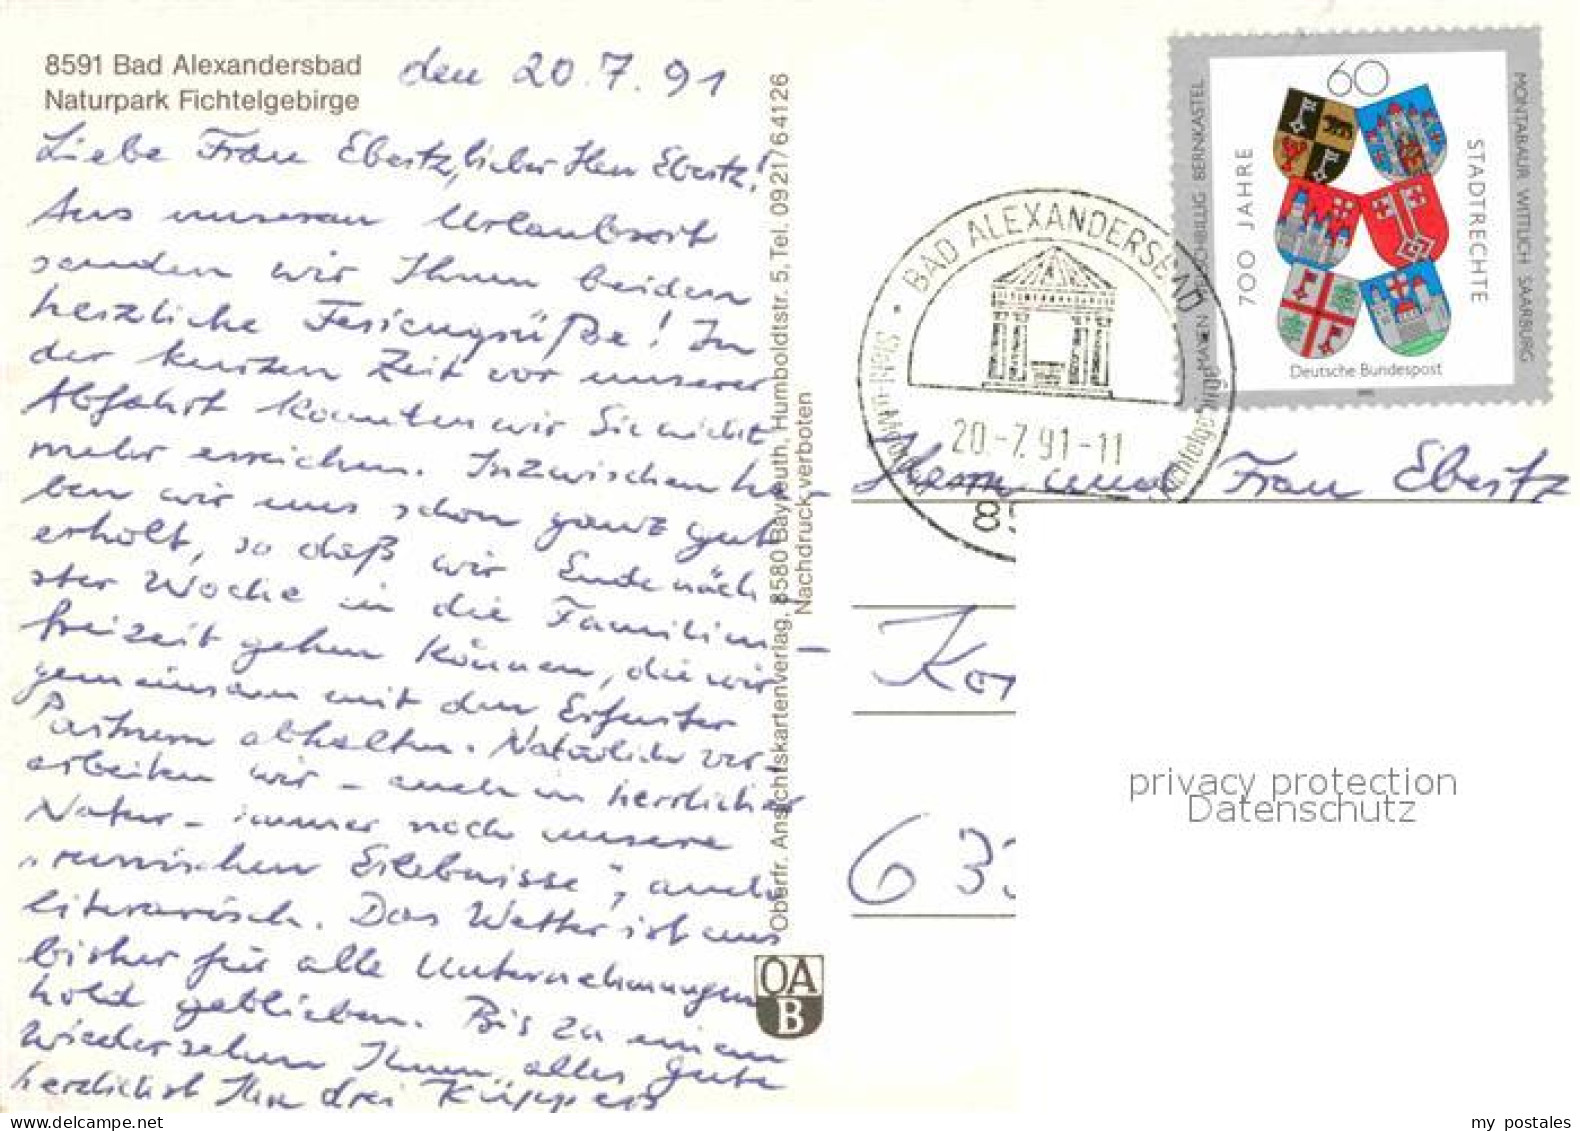 8591 Bad Alexandersbad
Naturpark Fichtelgebirge
den 20.7.91
Liebe Frau Ebertz, lieber Herr Ebertz!
Aus unserem Urlaubsort
senden wir Ihnen beiden
herzliche Feriengrüße! In
der kurzen Zeit vor unserer
Abfahrt konnten wir Sie nicht
mehr erreichen. Inzwischen ha-
ben wir uns schon ganz gut
erholt, so daß wir Ende näch-
ster Woche in die Familien-
freizeit gehen können, die wir
gemeinsam mit den Erfurter
Partnern abhalten. Natürlich ver-
arbeiten wir - auch in herrlicher
Natur - immer noch unsere
"russischen Erlebnisse", auch
literarisch. Das Wetter ist uns
bisher für alle Unternehmungen
hold geblieben. Bis zu einem
Wiedersehen Ihnen alles Gute
herzlichst Ihre drei Küppers
Oberfr. Ansichtskartenverlag, 8580 Bayreuth, Humboldtstr. 5, Tel. 0921/64126
Nachdruck verboten
OA
B
BAD ALEXANDERSBAD
20.-7.91-11
85
60
700 JAHRE
STADTRECHTE
MAYEN WELSCHBILLIG BERNKASTEL
MONTABAUR WITTLICH SAARBURG
Deutsche Bundespost
Herrn und Frau Ebertz
Kor
633
privacy protection
Datenschutz
my postales